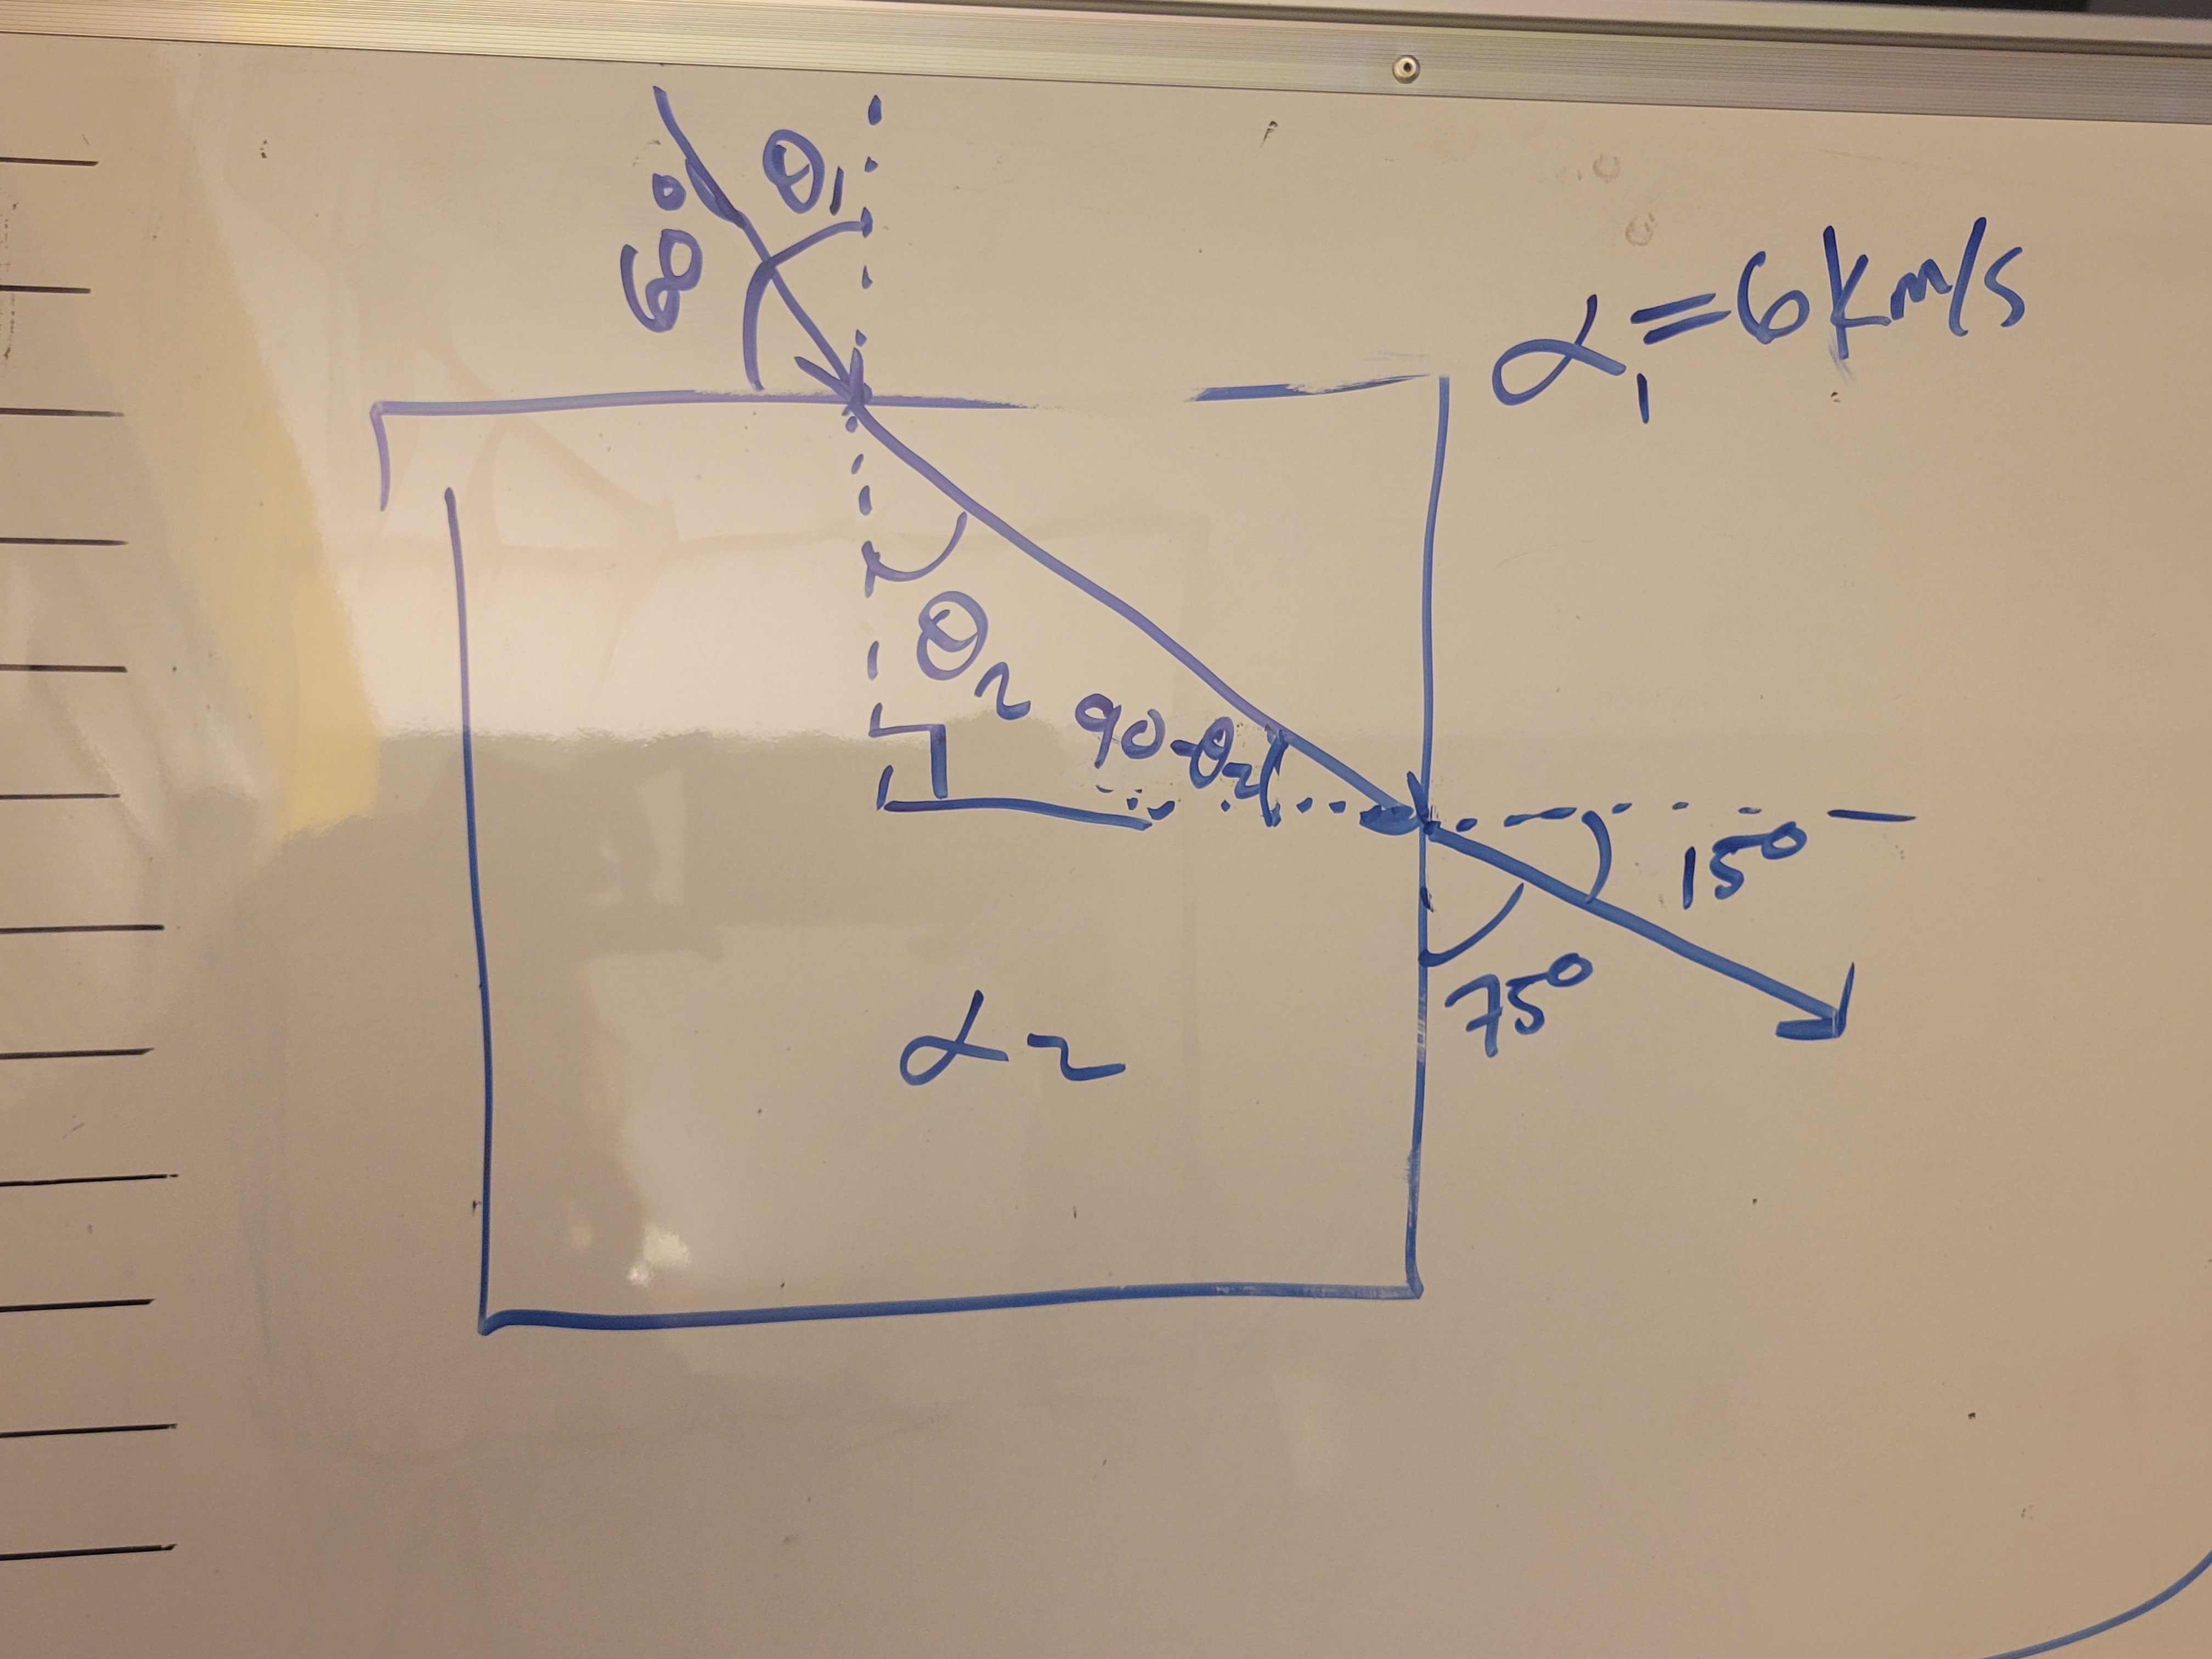 θ₁
60°
α₁=6km/s
θ₂
90-θ₂
15°
75°
α₂